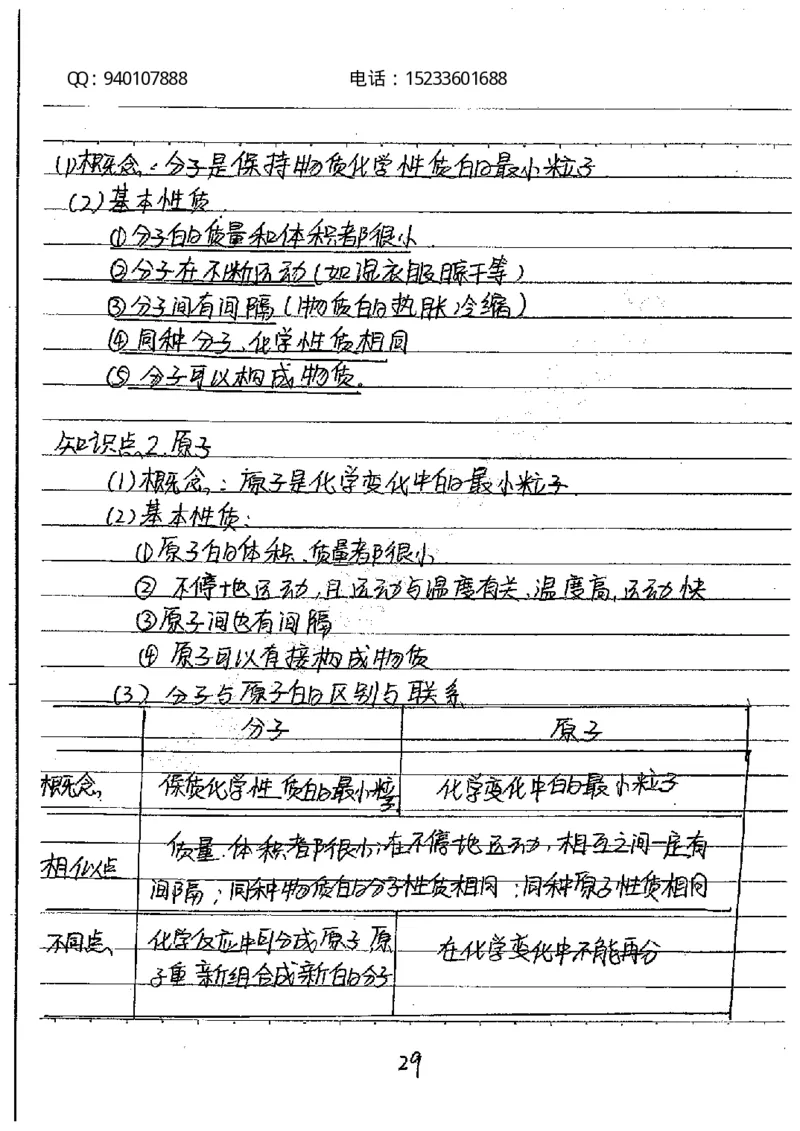 QQ：940107888 电话：15233601688
(1)概念：分子是保持物质化学性质的最小粒子
(2)基本性质
①分子的质量和体积都很小
②分子在不断运动(如湿衣服晾干等)
③分子间有间隔(物质的热胀冷缩)
④同种分子、化学性质相同
⑤分子可以构成物质。
知识点2.原子
(1)概念：原子是化学变化中的最小粒子
(2)基本性质：
①原子的体积、质量都很小
②不停地运动,且运动与温度有关、温度高,运动快
③原子间也有间隔
④原子可以直接构成物质
(3)分子与原子的区别与联系
分子 原子
概念 保质化学性质的最小粒子 化学变化中的最小粒子
相似点 质量.体积都很小;在不停地运动,相互之间一定有
间隔;同种物质的分子性质相同;同种原子性质相同
不同点 化学反应中可分成原子 原 在化学变化中不能再分
子重新组合成新的分子
29